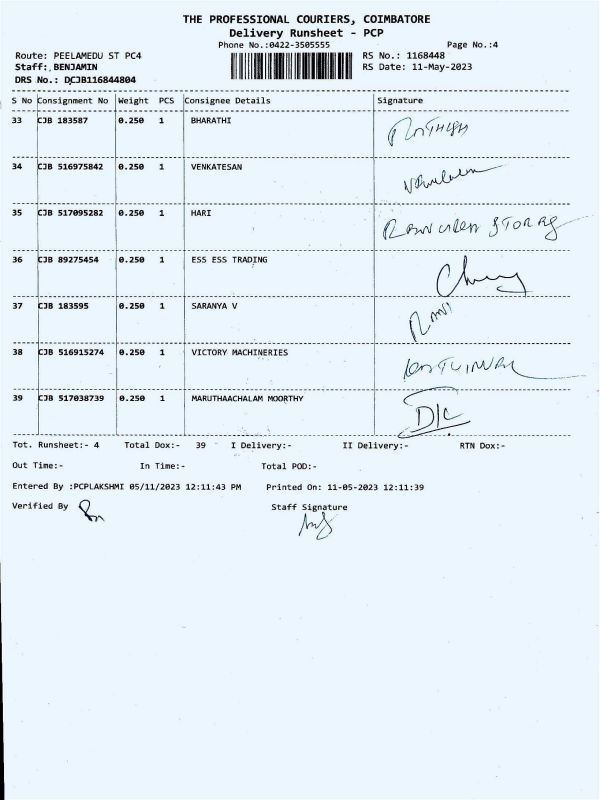 THE PROFESSIONAL COURIERS, COIMBATORE
Delivery Runsheet - PCP
Phone No.:0422-3505555 Page No.:4
Route: PEELAMEDU ST PC4 RS No.: 1168448
Staff: BENJAMIN RS Date: 11-May-2023
DRS No.: DCJB116844804
S No Consignment No Weight PCS Consignee Details Signature
33 CJB 183587 0.250 1 BHARATHI
34 CJB 516975842 0.250 1 VENKATESAN
35 CJB 517095282 0.250 1 HARI STORAS
36 CJB 89275454 0.250 1 ESS ESS TRADING
37 CJB 183595 0.250 1 SARANYA V
38 CJB 516915274 0.250 1 VICTORY MACHINERIES
39 CJB 517038739 0.250 1 MARUTHAACHALAM MOORTHY D/C
Tot. Runsheet:- 4 Total Dox:- 39 I Delivery:- II Delivery:- RTN Dox:-
Out Time:- In Time:- Total POD:-
Entered By :PCPLAKSHMI 05/11/2023 12:11:43 PM Printed On: 11-05-2023 12:11:39
Verified By Staff Signature